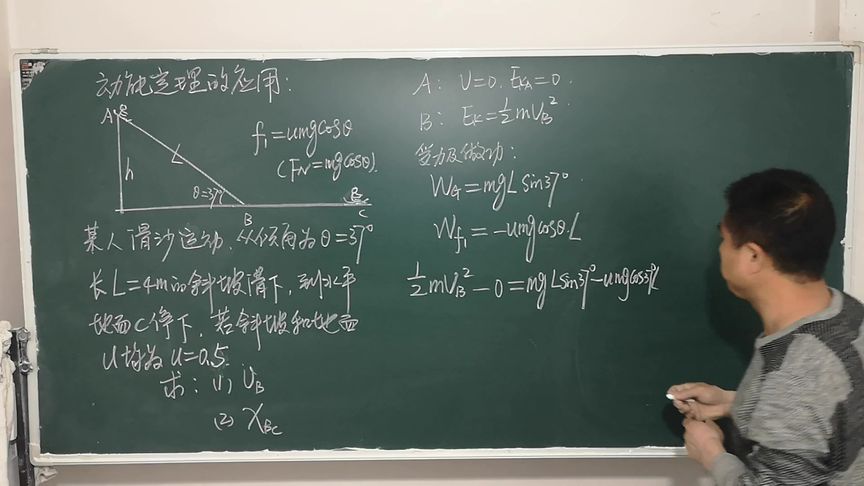 动能定理的应用:
A
h
L
θ=37°
B
B
C
f₁=umgcosθ
(FN=mgcosθ).
某人滑沙运动,从倾角为θ=37°
长L=4m的斜坡滑下,到水平
地面C停下,若斜坡和地面
u均为u=0.5.
求:(1) UB
(2) XBC
A: U=0. EKA=0.
B: EK=½mUB²
受力及做功:
WG=mgLsin37°.
Wf₁=-umgcosθ·L
½mUB²-0=mgLsin37°-umgcos37°L